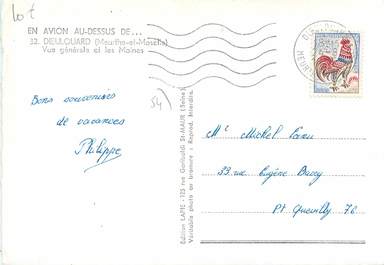 Lot
EN AVION AU-DESSUS DE...
32. DIEULOUARD (Meurthe-et-Moselle)
Vue générale et les Maines
54)
Bons souvenirs
de vacances
Philippe
Edition LAPIE - 125 rue Garibaldi St-MAUR (Seine)
Véritable photo au bromure : Reprod. Interdite.
Mr Michel
33 rue Eugène
Pt Quevilly 76